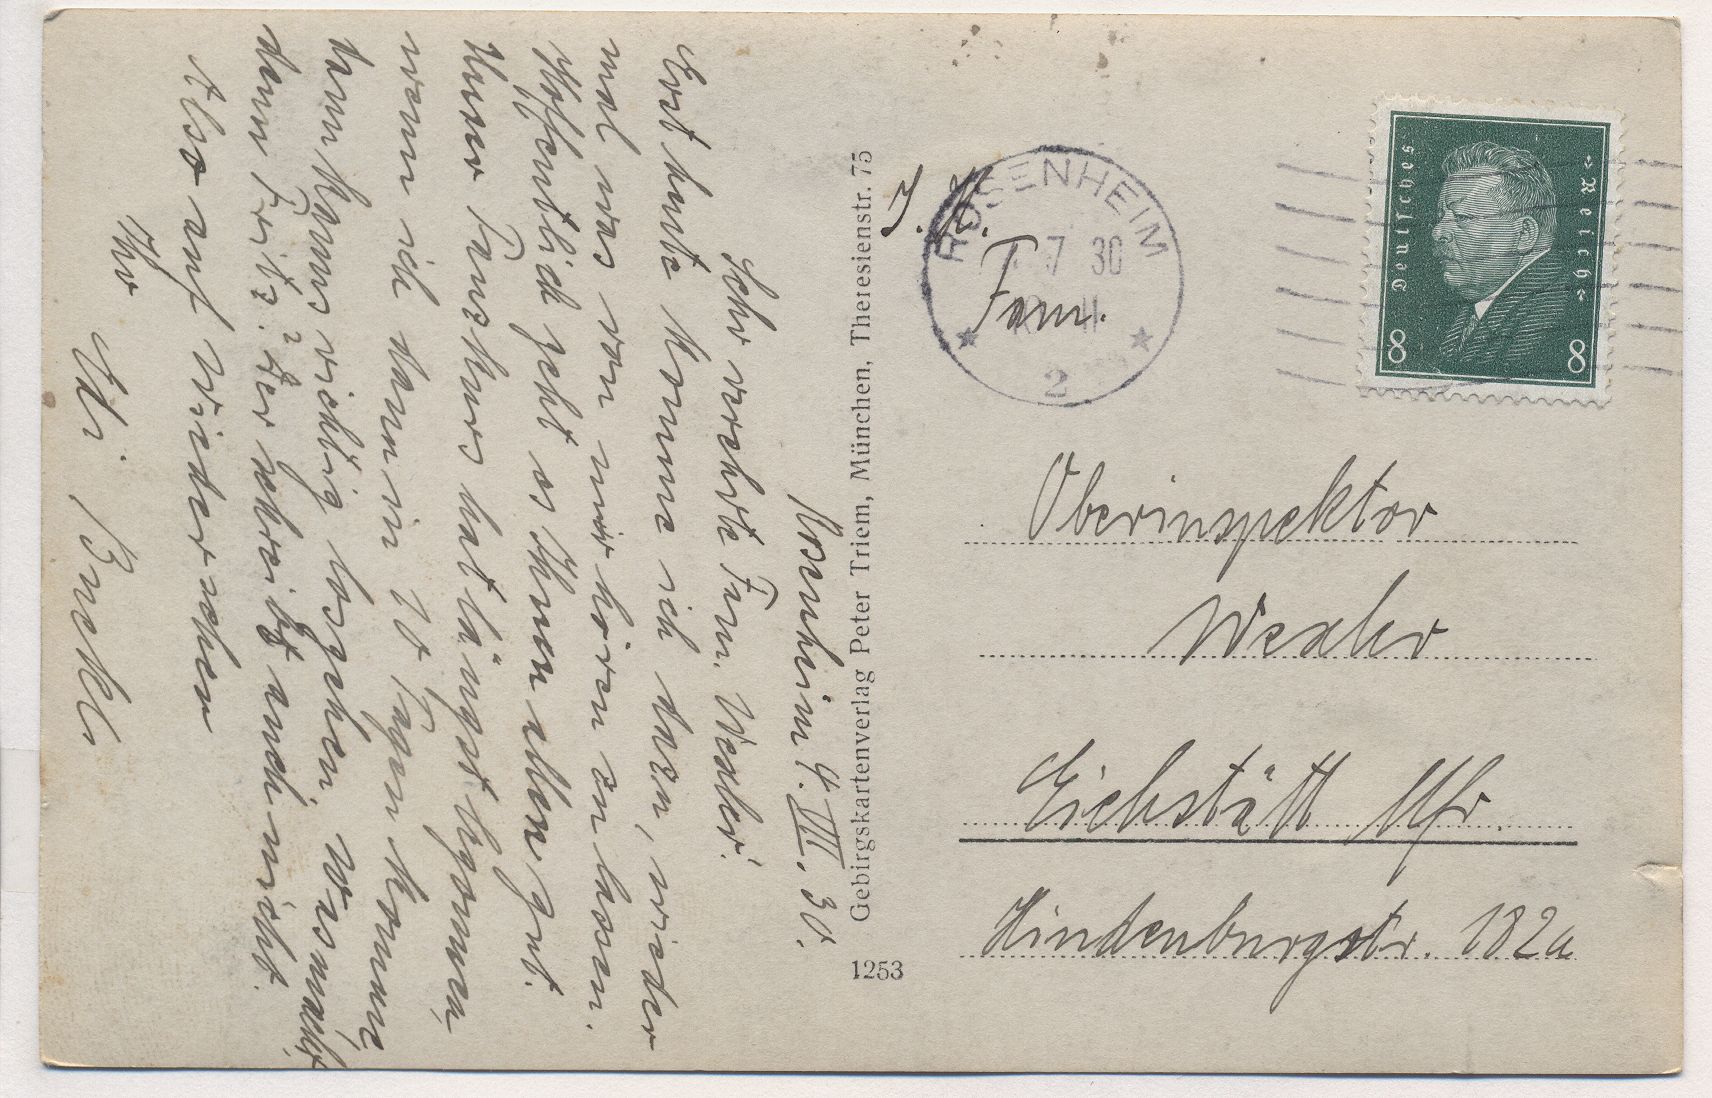 Rosenheim 4. VII. 30.
Sehr verehrte Fam. Wexler!
Erst heute komme ich dazu, wieder
mal was von mir hören zu lassen.
Hoffentlich geht es Ihnen allen gut.
Unser Tanzkurs hat längst begonnen,
wenn ich dann in 14 Tagen komme
kann Hanns richtig losgehen. Was macht
denn Fritz? Der schreibt auch nicht.
Also auf Wiedersehen
Ihr
Gebirgskartenverlag Peter Triem, München, Theresienstr. 75
1253
ROSENHEIM
7 30
2
Deutsches
»Reich«
8 8
Fam.
Oberinspektor
Wexler
Eichstätt Mfr.
Hindenburgstr. 182a